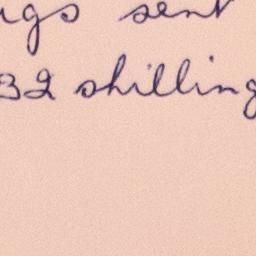 gs sent
32 shilling